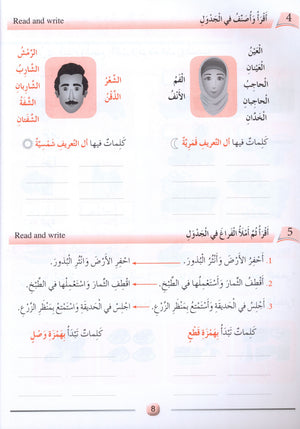 Read and write
4 أَقْرَأُ وَأُصَنِّفُ فِي الْجَدْوَلِ
الْعَيْنُ
الْعَيْنانِ
الْحاجِبُ
الْحاجِبانِ
الْخَدَّانِ
الْفَمُ
الْأَنْفُ
الشَّعْرُ
الذَّقْنُ
الرِّمْشُ
الشّارِبُ
الشّارِبانِ
الشَّفَةُ
الشَّفَتانِ
كَلِماتٌ فيها اَل التَّعريف قَمَرِيَّةٌ
كَلِماتٌ فيها اَل التَّعريف شَمْسِيَّةٌ
Read and write
5 أَقْرَأُ ثُمَّ أَمْلَأُ الْفَراغَ فِي الْجَدْوَلِ
1. أَحْفِرُ الْأَرْضَ وَأَنْثُرُ الْبُذورَ. احْفِرِ الْأَرْضَ وَانْثُرِ الْبُذورَ.
2. أَقْطِفُ الثِّمارَ وَأَسْتَعْمِلُها فِي الطَّبْخِ. اقْطِفِ الثِّمارَ وَاسْتَعْمِلْها فِي الطَّبْخِ.
3. أَجْلِسُ فِي الْحَديقَةِ وَأَسْتَمْتِعُ بِمَنْظَرِ الزَّرْعِ. اجْلِسْ فِي الْحَديقَةِ وَاسْتَمْتِعْ بِمَنْظَرِ الزَّرْعِ.
كَلِماتٌ تَبْدَأُ بِهَمْزَةِ قَطْعٍ
كَلِماتٌ تَبْدَأُ بِهَمْزَةِ وَصْلٍ
8